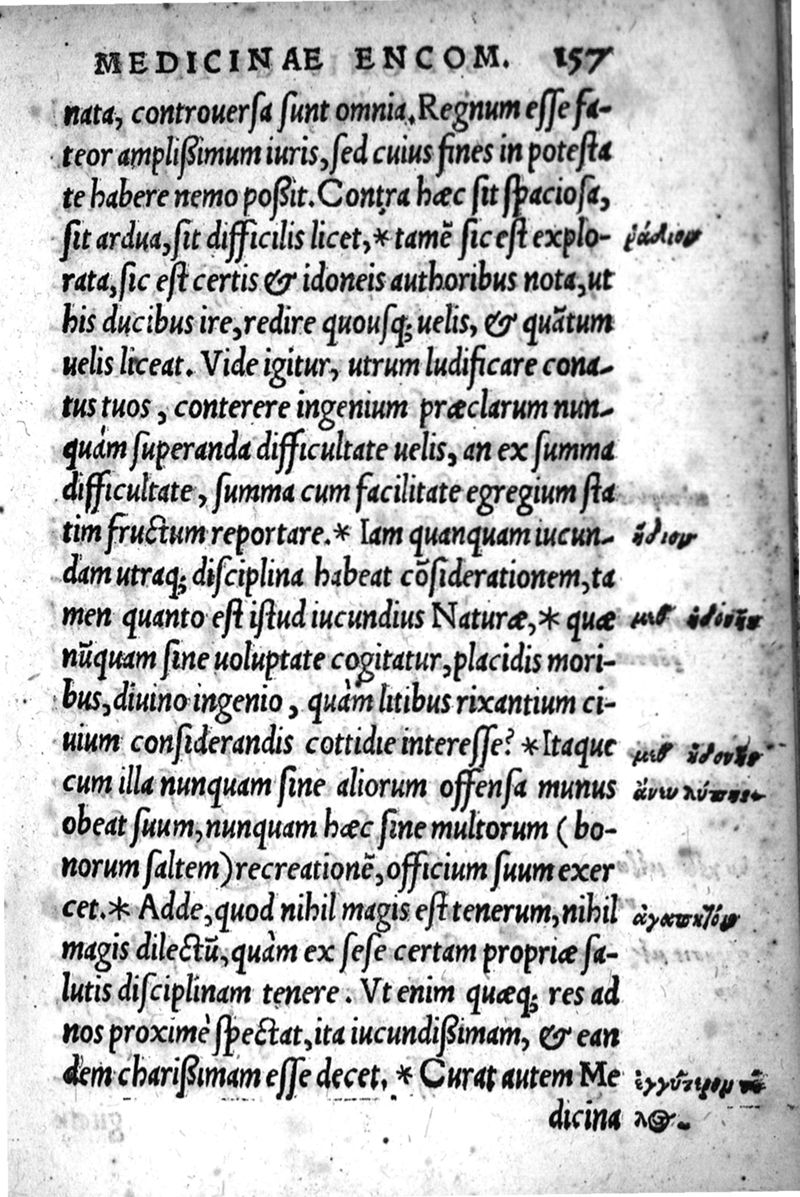 MEDICINAE ENCOM. 157
nata, controuersa sunt omnia. Regnum esse fa-
teor amplißimum iuris, sed cuius fines in potesta
te habere nemo poßit. Contra hæc sit spaciosa,
sit ardua, sit difficilis licet, * tamẽ sic est explo- ῥάδιον
rata, sic est certis & idoneis authoribus nota, ut
his ducibus ire, redire quousq; uelis, & quãtum
uelis liceat. Vide igitur, utrum ludificare cona-
tus tuos, conterere ingenium præclarum nun-
quàm superanda difficultate uelis, an ex summa
difficultate, summa cum facilitate egregium sta
tim fructum reportare. * Iam quanquam iucun- ἥδιον
dam utraq; disciplina habeat cõsiderationem, ta
men quanto est istud iucundius Naturæ, * quæ μεθ ἡδονῆς
nũquam sine uoluptate cogitatur, placidis mori-
bus, diuino ingenio, quàm litibus rixantium ci-
uium considerandis cottidie interesse? * Itaque μεθ ἡδονῆς
cum illa nunquam sine aliorum offensa munus ἄνευ λύπης
obeat suum, nunquam hæc sine multorum (bo-
norum saltem) recreationẽ, officium suum exer
cet. * Adde, quod nihil magis est tenerum, nihil ἀγαπητόν
magis dilectũ, quàm ex sese certam propriæ sa-
lutis disciplinam tenere. Vt enim quæq; res ad
nos proximè spectat, ita iucundißimam, & ean
dem charißimam esse decet. * Curat autem Me ἐγγύτερον
dicina